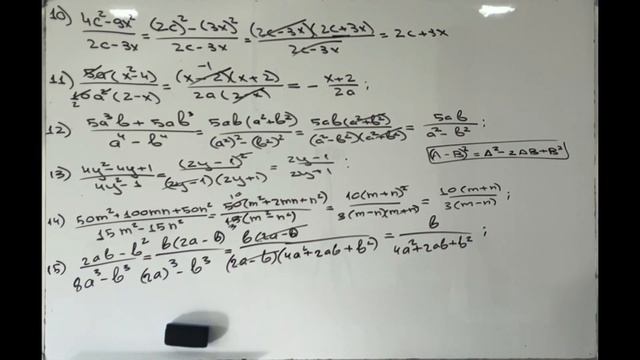 10) (4c²-9x²)/(2c-3x) = ((2c)²-(3x)²)/(2c-3x) = ((2c-3x)(2c+3x))/(2c-3x) = 2c+3x
11) (5a(x²-4))/(10a²(2-x)) = ((x-2)(x+2))/(2a(2-x)) = -(x+2)/(2a);
12) (5a³b+5ab³)/(a⁴-b⁴) = (5ab(a²+b²))/((a²)²-(b²)²) = (5ab(a²+b²))/((a²-b²)(a²+b²)) = (5ab)/(a²-b²);
(A-B)²=A²-2AB+B²
13) (4y²-4y+1)/(4y²-1) = ((2y-1)²)/((2y-1)(2y+1)) = (2y-1)/(2y+1);
14) (50m²+100mn+50n²)/(15m²-15n²) = (50(m²+2mn+n²))/(15(m²-n²)) = (10(m+n)²)/(3(m-n)(m+n)) = (10(m+n))/(3(m-n));
15) (2ab-b²)/(8a³-b³) = (b(2a-b))/((2a)³-b³) = (b(2a-b))/((2a-b)(4a²+2ab+b²)) = b/(4a²+2ab+b²);